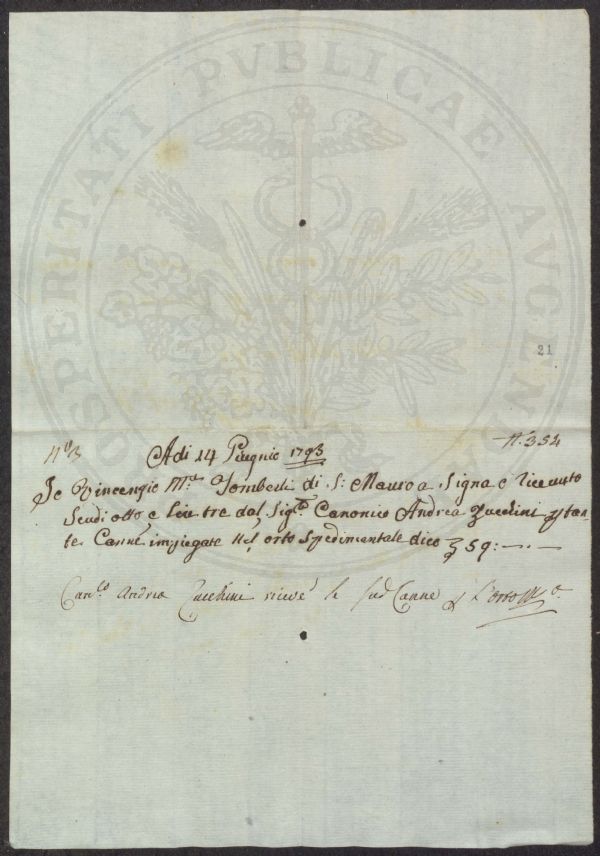 PROSPERITATI PUBLICAE AUGENDAE
21
N° 3
N. 352
Adi 14 Giugnio 1793
Io Vincenzio M.ª Lombardi di S: Mauro a Signa ò ricevuto
Scudi otto e Lire tre dal Sig.re Canonico Andrea Zucchini p tan-
te Canne impiegate nel orto spedimentale dico £ 59:—.—
Can.co Andrea Zucchini ricevé le sud Canne p l'orto